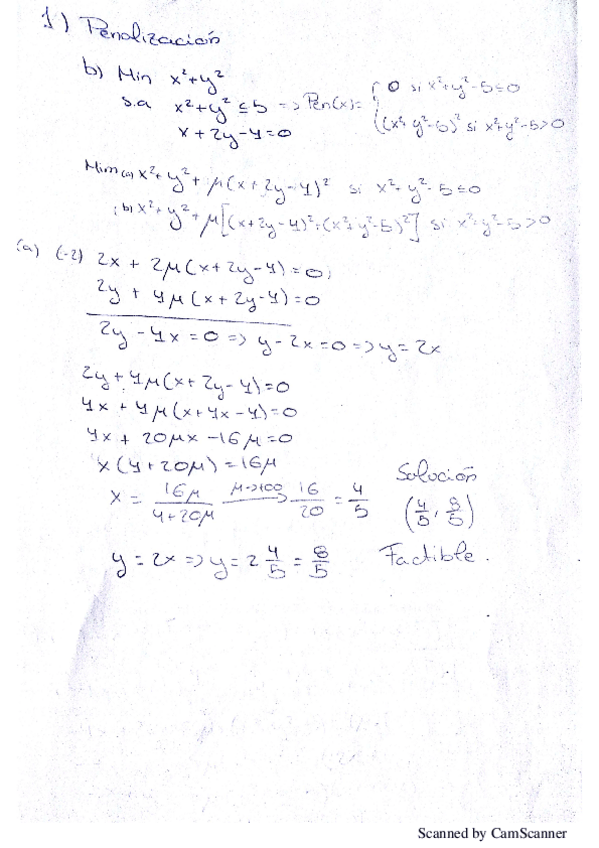 1) Penalización
b) Min x²+y²
s.a x²+y² ≤ 5 => Pen(x) = { 0 si x²+y²-5≤0
x+2y-4=0 ((x²+y²-5)² si x²+y²-5>0
Min (a) x²+y²+ μ(x+2y-4)² si x²+y²-5≤0
(b) x²+y²+ μ[(x+2y-4)²+(x²+y²-5)²] si x²+y²-5>0
(a) (-2) 2x + 2μ(x+2y-4)=0;
2y + 4μ(x+2y-4)=0
2y - 4x = 0 => y-2x=0 => y=2x
2y+4μ(x+2y-4)=0
4x+4μ(x+4x-4)=0
4x + 20μx -16μ=0
x(4+20μ)=16μ
x = 16μ/(4+20μ) μ→∞ 16/20 = 4/5
Solución
(4/5, 8/5)
y=2x => y=2 4/5 = 8/5
Factible.
Scanned by CamScanner